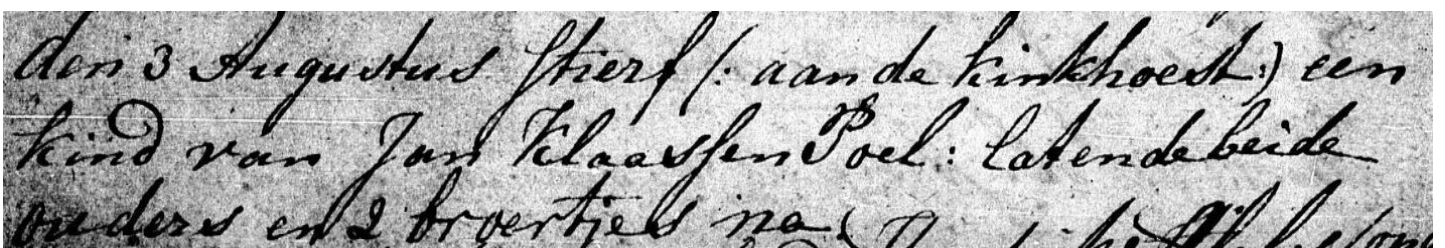 den 3 Augustus stierf (: aan de kinkhoest:) een
kind van Jan Klaassen Poel: latende beide
ouders en 2 broertjes na